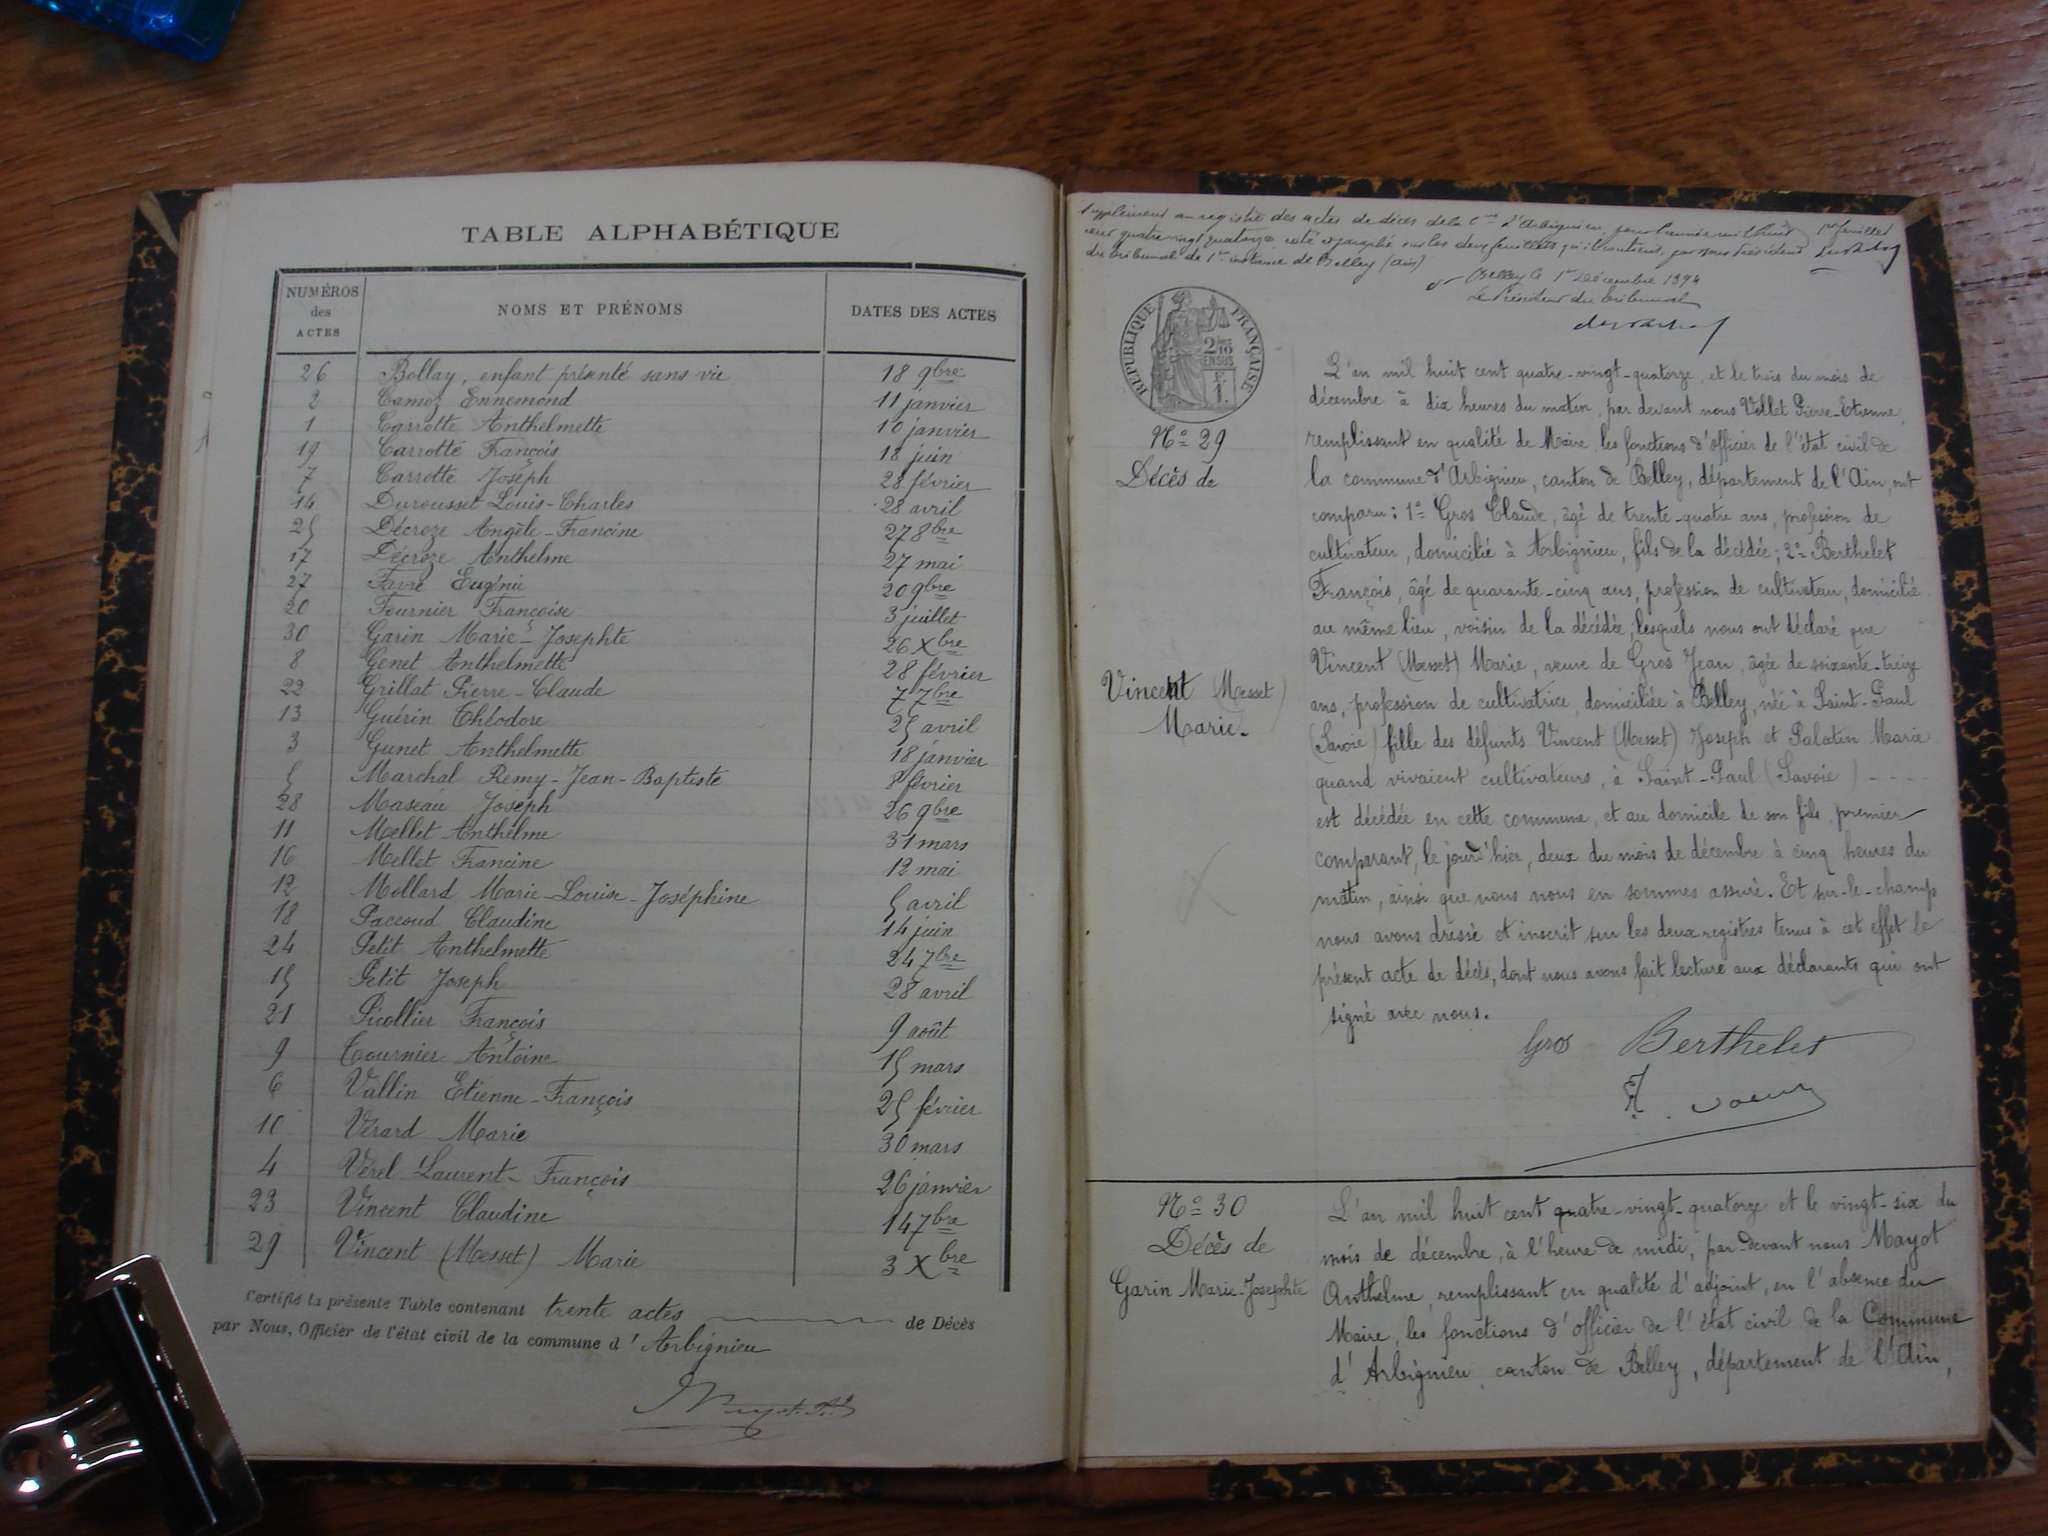 TABLE ALPHABÉTIQUE
NUMÉROS des ACTES NOMS ET PRÉNOMS DATES DES ACTES
26 Bollay, enfant présenté sans vie 18 9bre
2 Camoz Ennemond 11 janvier
1 Carrotte Anthelmette 10 janvier
19 Carrotte François 18 juin
7 Carrotte Joseph 28 février
14 Durousset Louis-Charles 28 avril
25 Décroze Angèle-Francine 27 8bre
17 Décroze Anthelme 27 mai
27 Favre Eugénie 20 9bre
20 Fournier Françoise 3 juillet
30 Garin Marie-Josephte 26 Xbre
8 Genet Anthelmette 28 février
22 Grillat Pierre-Claude 7 7bre
13 Guérin Théodore 25 avril
3 Gunet Anthelmette 18 janvier
5 Marchal Remy-Jean-Baptiste 8 février
28 Maseau Joseph 26 9bre
11 Mellet Anthelme 31 mars
16 Mellet Francine 12 mai
12 Mollard Marie-Louise-Joséphine 5 avril
18 Paccoud Claudine 14 juin
24 Petit Anthelmette 24 7bre
15 Petit Joseph 28 avril
21 Picollier François 9 août
9 Tournier Antoine 15 mars
6 Vallin Etienne-François 25 février
10 Vérard Marie 30 mars
4 Vérel Laurent-François 26 janvier
23 Vincent Claudine 14 7bre
29 Vincent (Messet) Marie 3 Xbre
Certifié la présente Table contenant trente actes de Décès
par Nous, Officier de l'état civil de la commune d'Arbignieu
Supplément au registre des actes de décès de la Cne d'Arbignieu, pour l'année mil huit
cent quatre vingt quatorze coté et paraphé sur les deux feuillets qu'il contient, par nous Président
du tribunal de 1re instance de Belley (Ain)
1er feuillet
Belley le 1er Décembre 1894
Le Président du tribunal
RÉPUBLIQUE FRANÇAISE
2/10 EN SUS
F. 1.
No 29
Décès de
Vincent (Messet)
Marie.
L'an mil huit cent quatre-vingt-quatorze, et le trois du mois de
décembre à dix heures du matin, par devant nous Vollet Pierre-Etienne,
remplissant en qualité de Maire les fonctions d'officier de l'état civil de
la commune d'Arbignieu, canton de Belley, département de l'Ain, ont
comparu: 1o Gros Claude, âgé de trente-quatre ans, profession de
cultivateur, domicilié à Arbignieu, fils de la décédée; 2o Berthelet
François, âgé de quarante-cinq ans, profession de cultivateur, domicilié
au même lieu, voisin de la décédée, lesquels nous ont déclaré que
Vincent (Messet) Marie, veuve de Gros Jean, âgée de soixante-treize
ans, profession de cultivatrice, domiciliée à Belley, née à Saint-Paul
(Savoie) fille des défunts Vincent (Messet) Joseph et Palatin Marie
quand vivaient cultivateurs, à Saint-Paul (Savoie) - - - -
est décédée en cette commune, et au domicile de son fils premier
comparant, le jourd'hier, deux du mois de décembre à cinq heures du
matin, ainsi que nous nous en sommes assuré. Et sur-le-champ
nous avons dressé et inscrit sur les deux registres tenus à cet effet le
présent acte de décès, dont nous avons fait lecture aux déclarants qui ont
signé avec nous.
Gros Berthelet
No 30
Décès de
Garin Marie-Josephte
L'an mil huit cent quatre-vingt-quatorze et le vingt-six du
mois de décembre, à l'heure de midi, par-devant nous Mayot
Anthelme, remplissant en qualité d'adjoint, en l'absence du
Maire, les fonctions d'officier de l'état civil de la Commune
d'Arbignieu, canton de Belley, département de l'Ain,